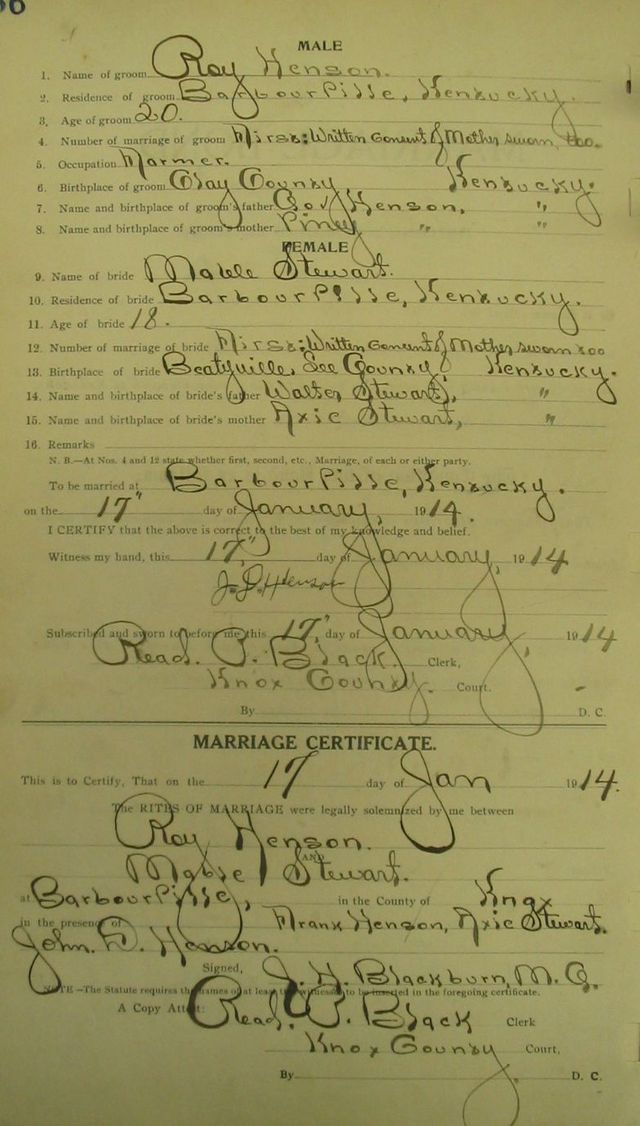 56
MALE
1. Name of groom Roy Henson.
2. Residence of groom Barbourville, Kentucky.
3. Age of groom 20.
4. Number of marriage of groom First: Written Consent of Mother sworn, too.
5. Occupation Farmer.
6. Birthplace of groom Clay County Kentucky.
7. Name and birthplace of groom's father Gov. Henson, "
8. Name and birthplace of groom's mother Piney " "
FEMALE
9. Name of bride Mable Stewart.
10. Residence of bride Barbourville, Kentucky.
11. Age of bride 18.
12. Number of marriage of bride First: Written Consent of Mother sworn too
13. Birthplace of bride Beatyville, Lee County, Kentucky.
14. Name and birthplace of bride's father Walter Stewart, "
15. Name and birthplace of bride's mother Axie Stewart, "
16. Remarks
N. B.—At Nos. 4 and 12 state whether first, second, etc., Marriage, of each or either party.
To be married at Barbourville, Kentucky.
on the 17" day of January, 1914.
I CERTIFY that the above is correct to the best of my knowledge and belief.
Witness my hand, this 17" day of January, 1914
J. D. Henson
Subscribed and sworn to before me this 17" day of January, 1914
Read. P. Black Clerk,
Knox County. Court.
By D. C.
MARRIAGE CERTIFICATE.
This is to Certify, That on the 17 day of Jan 1914.
The RITES OF MARRIAGE were legally solemnized by me between
Roy Henson.
AND
Mable Stewart.
at Barbourville, in the County of Knox
in the presence of Frank Henson, Axie Stewart.
John. D. Henson.
Signed, J. H. Blackburn, M. G.
NOTE—The Statute requires the names of at least two witnesses to be inserted in the foregoing certificate.
A Copy Attest: Read. P. Black Clerk
Knox County Court,
By D. C.